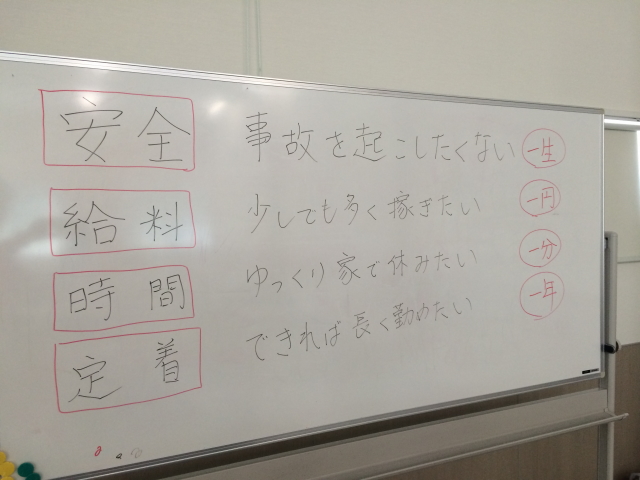 安全 事故を起こしたくない 一生
給料 少しでも多く稼ぎたい 一円
時間 ゆっくり家で休みたい 一分
定着 できれば長く勤めたい 一年